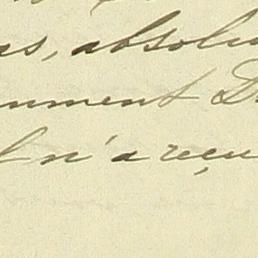 as, absolu
mment D
l n'a reçu